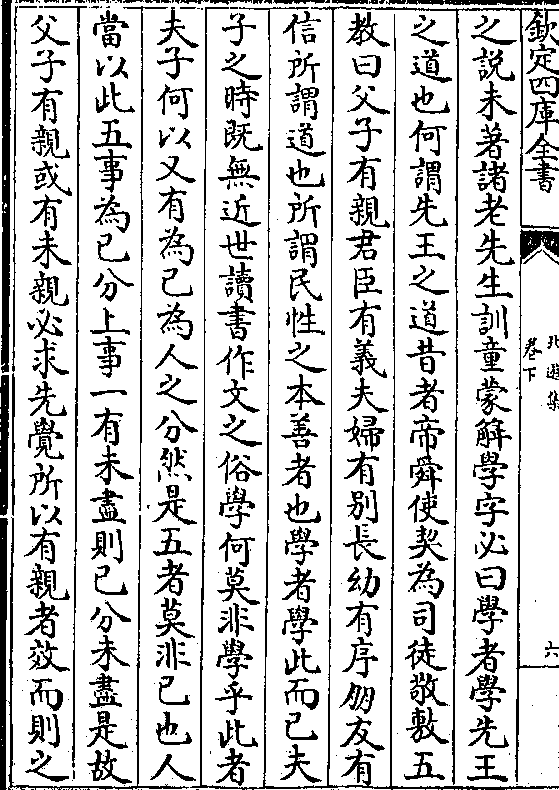 欽定四庫全書
北遊集
卷下
六
之說未著諸老先生訓童蒙解學字必曰學者學先王
之道也何謂先王之道昔者帝舜使契為司徒敬敷五
教曰父子有親君臣有義夫婦有別長幼有序朋友有
信所謂道也所謂民性之本善者也學者學此而已夫
子之時既無近世讀書作文之俗學何莫非學乎此者
夫子何以又有為己為人之分然是五者莫非己也人
當以此五事為己分上事一有未盡則己分未盡是故
父子有親或有未親必求先覺所以有親者效而則之